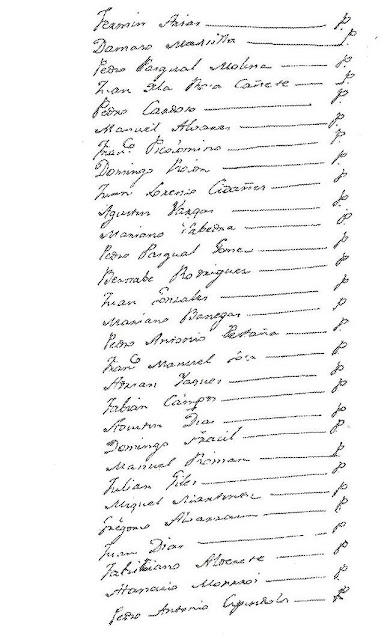 Fermin Arias — p.
Damaso Mansilla — p.
Pedro Pasqual Molina — p.
Juan Cañete — p.
Pedro Cardoso — p.
Manuel Alvares — p.
Fran.co Picolomino — p.
Domingo — p.
Juan Lorenzo — p.
Agustin Vargas — p.
Mariano Taborda — p.
Pedro Pasqual Gomez — p.
Bernabe Rodriguez — p.
Juan Gonzales — p.
Mariano Banegas — p.
Pedro Antonio Pestaña — p.
Fran.co Manuel — p.
Adrian Vaques — p.
Fabian Campos — p.
Agustin Dias — p.
Domingo — p.
Manuel Roman — p.
Julian Giles — p.
Miguel Martinez — p.
Gregorio — p.
Juan Dias — p.
Alderete — p.
Atanacio — p.
Pedro Antonio Espindola — p.